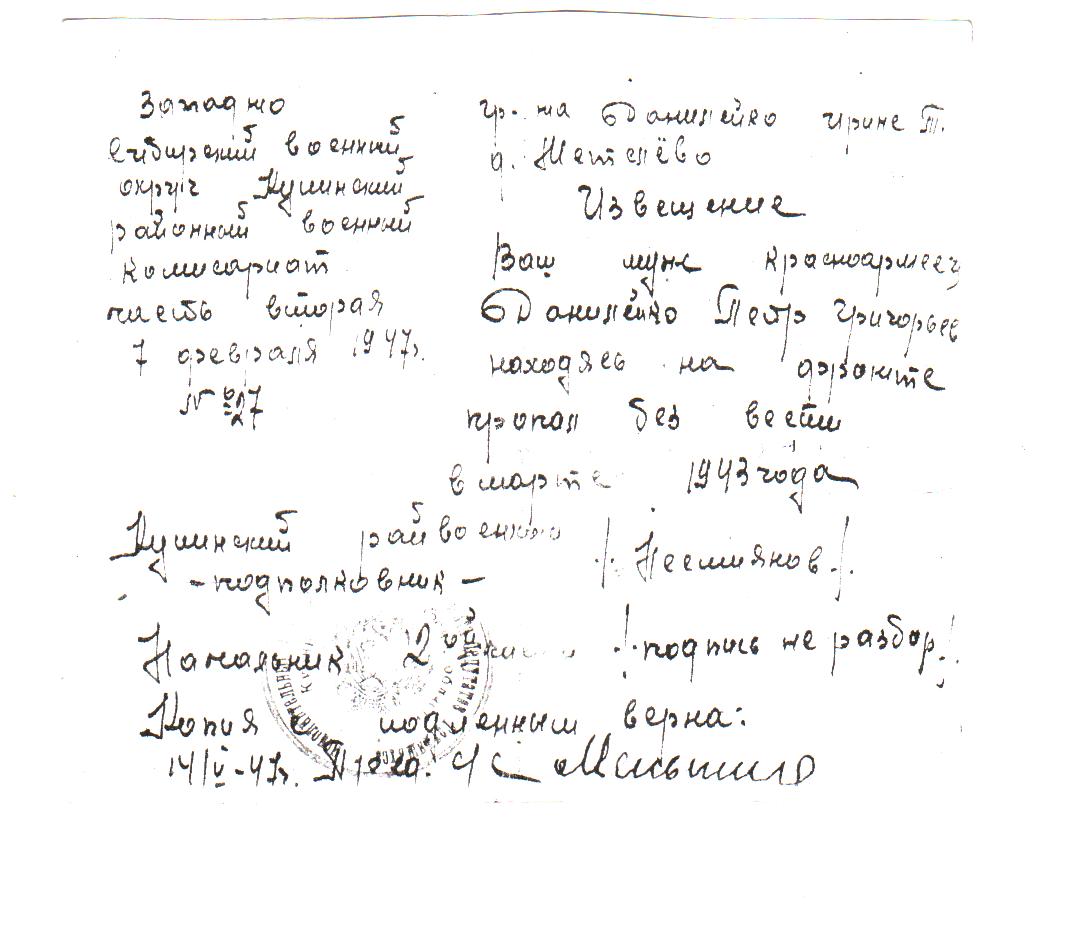 Западно
Сибирский военный
округ Купинский
районный военный
комисариат
часть вторая
7 февраля 1947г.
N 27
гр-ка Данилейко Ирине П.
д. Метелёво
Извещение
Ваш муж красноармеец
Данилейко Петр Григорьев
находясь на фронте
пропал без вести
в марте 1943 года
Купинский райвоенком
- подполковник - /Несмиянов/.
Начальник 2ой части /подпись не разбор./
Копия с подленным верна:
14/V-47г. Пред. с/с